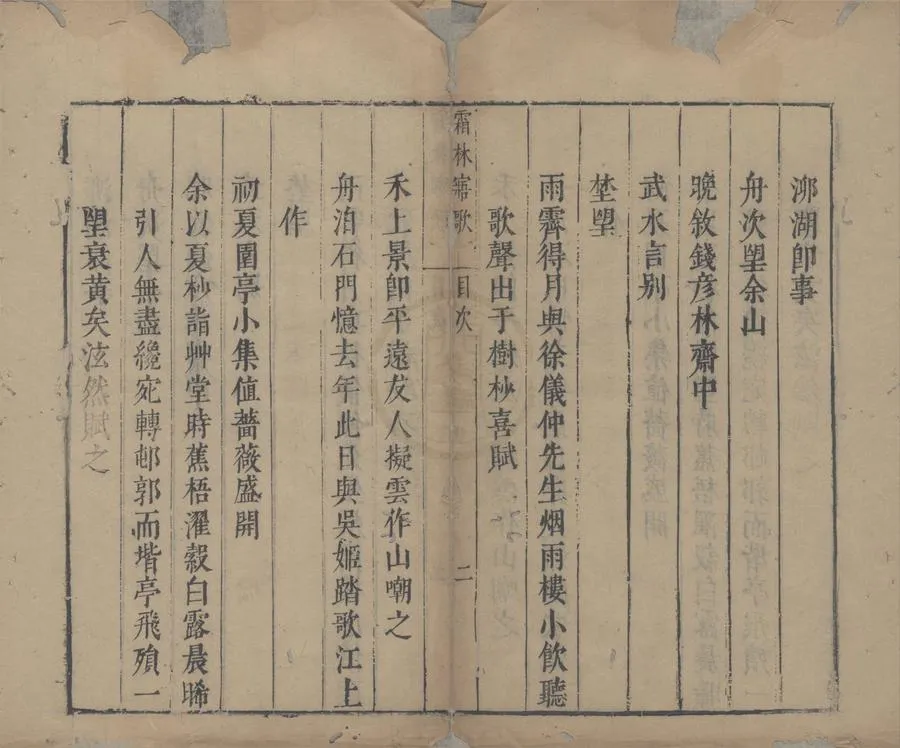 泖湖卽事
舟次朢余山
晚敘錢彥林齋中
武水言别
埜朢
雨霽得月與徐儀仲先生烟雨樓小飮聽
歌聲出于樹杪喜賦
霜林寤歌 目次 二
禾上景卽平遠友人擬雲作山嘲之
舟泊石門憶去年此日與吳姬踏歌江上
作
初夏園亭小集值薔薇盛開
余以夏杪詣艸堂時蕉梧濯縠白露晨晞
引人無盡纔宛轉邨郭而堦亭飛殞一
朢衰黃矣泫然賦之